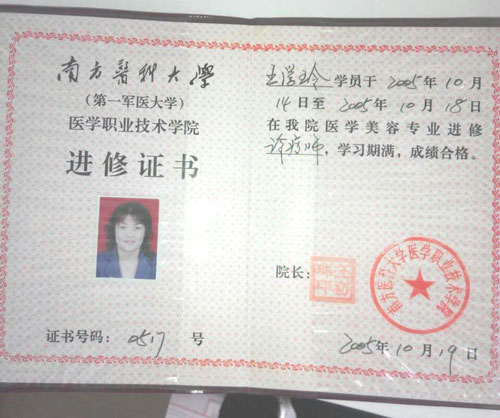 南方醫科大學
(第一军医大学)
医学职业技术学院
进修证书
证书号码: 0517 号
王学玲 学员于 2005 年 10 月
14 日至 2005 年 10 月 18 日
在我院医学美容专业进修
诊疗师, 学习期满, 成绩合格。
院长:
南方医科大学医学职业技术学院
2005 年 10 月 19 日